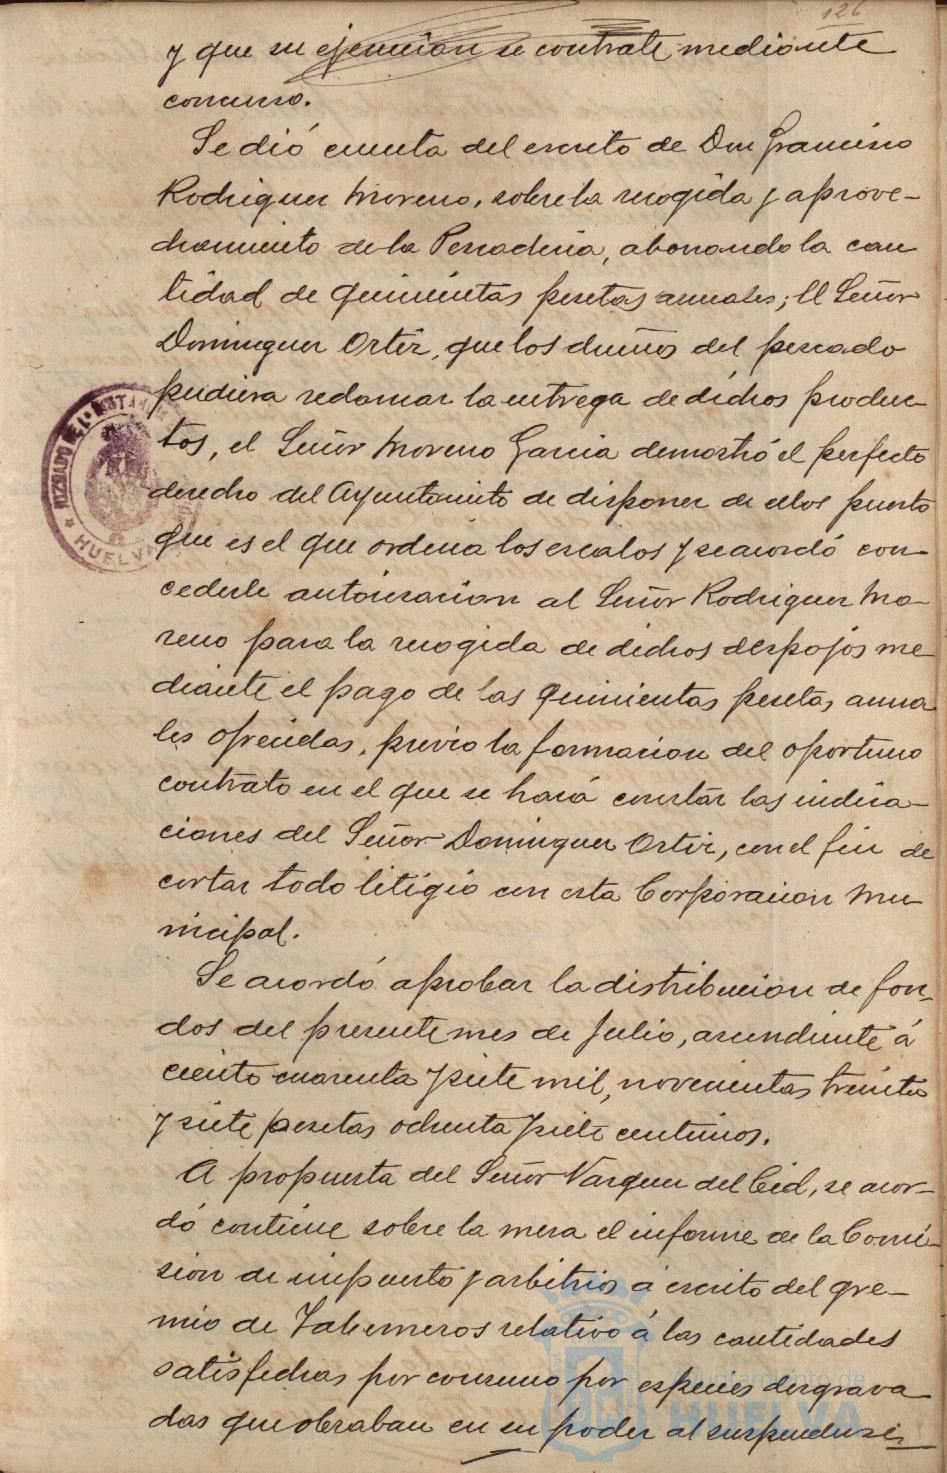 126
y que su ejecucion se contrate mediante
concurso.
Se dió cuenta del escrito de Don Francisco
Rodriguez Moreno, sobre la recogida y aprove-
chamiento de la Pescaderia, abonando la can
tidad de quinientas pesetas anuales; El Señor
Dominguez Ortiz, que los dueños del pescado
pudiera reclamar la entrega de dichos produc-
tos, el Señor Moreno Garcia demostró el perfecto
derecho del Ayuntamiento de disponer de ellos puesto
que es el que ordena los escalos y se acordó con-
cederle autorizacion al Señor Rodriguez Mo-
reno para la recogida de dichos despojos me
diante el pago de las quinientas pesetas anua
les ofrecidas, previo la formacion del oportuno
contrato en el que se hará constar las indica-
ciones del Señor Dominguez Ortiz, con el fin de
cortar todo litigio con esta Corporacion Mu-
nicipal.
Se acordó aprobar la distribucion de fon-
dos del presente mes de Julio, ascendiente á
ciento cuarenta y siete mil, novecientas treinta
y siete pesetas ochenta y siete centimos.
A propuesta del Señor Vazquez del Cid, se acor-
dó continue sobre la mesa el informe de la Comi-
sion de impuesto y arbitrios á escrito del gre-
mio de Taberneros relativo á las cantidades
satisfechas por consumo por especies desgrava
das que obraban en su poder al suspenderse
JUZGADO DE 1ª INSTANCIA
HUELVA
Ayuntamiento de
HUELVA